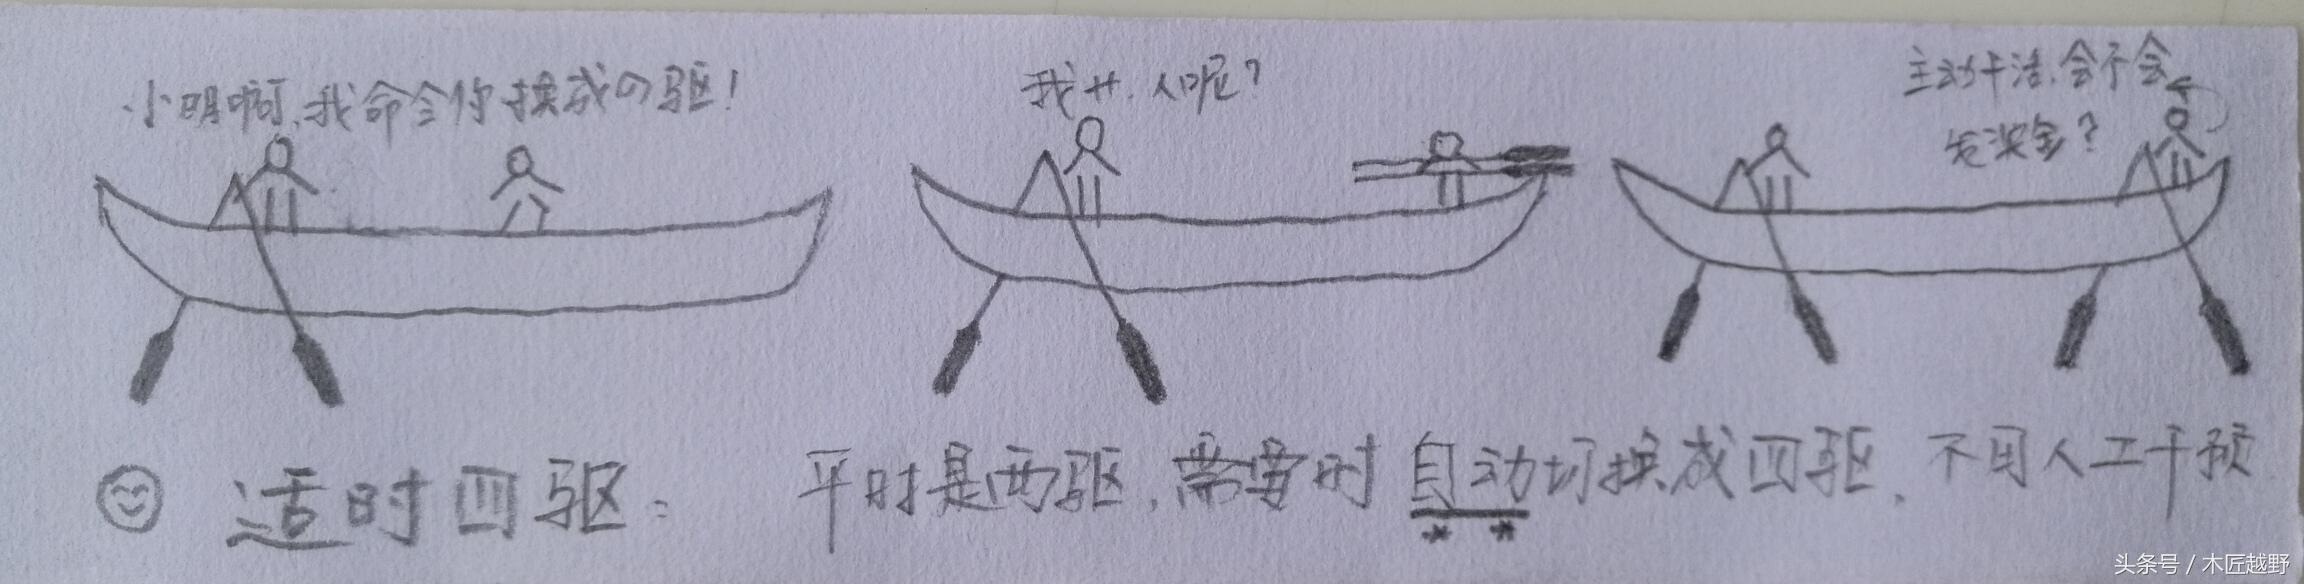 小明啊,我命令你换成四驱!
我廿.人呢?
主动干活.会不会
发奖金?
适时四驱: 平时是两驱,需要时自动切换成四驱,不用人工干预
头条号 / 木匠越野